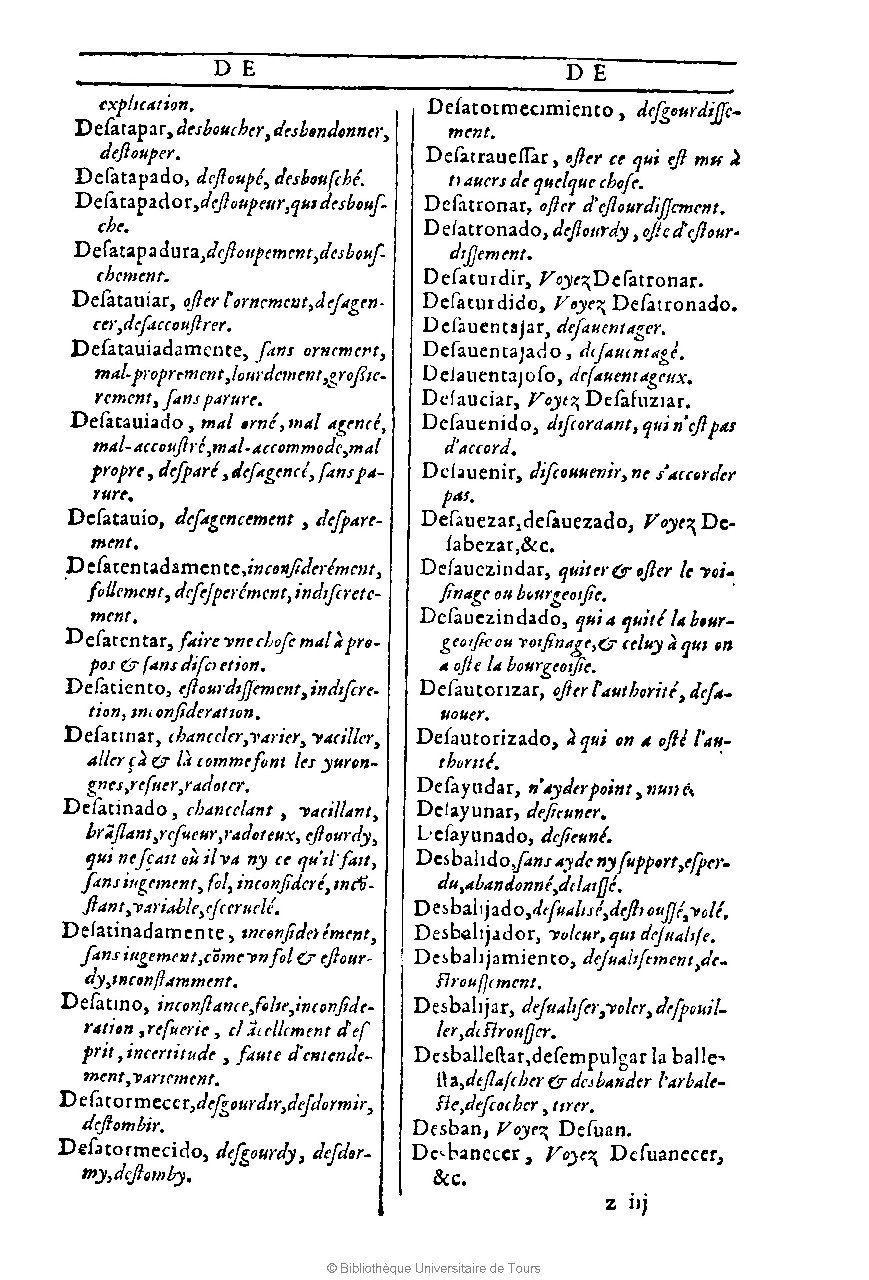 D E
explication.
Deſatapar, desboucher, desbondonner,
deſtouper.
Deſatapado, deſtoupé, desbouſché.
Deſatapador, deſtoupeur, qui desbouſ-
che.
Deſatapadura, deſtoupement, desbouſ-
chement.
Deſatauiar, oſter l'ornement, deſagen-
cer, deſaccouſtrer.
Deſatauiadamente, ſans ornement,
mal-proprement, lourdement, groſſie-
rement, ſans parure.
Deſatauiado, mal orné, mal agencé,
mal-accouſtré, mal-accommodé, mal
propre, deſparé, deſagencé, ſans pa-
rure.
Deſatauio, deſagencement, deſpare-
ment.
Deſatentadamente, inconſiderément,
follement, deſeſperément, indiſcrete-
ment.
Deſatentar, faire vne choſe mal à pro-
pos & ſans diſcretion.
Deſatiento, eſtourdiſſement, indiſcre-
tion, inconſideration.
Deſatinar, chanceler, varier, vaciller,
aller çà & là comme font les yuron-
gnes, reſuer, radoter.
Deſatinado, chancelant, vacillant,
brãſlant, reſueur, radoteux, eſtourdy,
qui ne ſçait où il va ny ce qu'il fait,
ſans iugement, fol, inconſideré, incõ-
ſtant, variable, eſceruelé.
Deſatinadamente, inconſiderément,
ſans iugement, cõme vn fol & eſtour-
dy, inconſtamment.
Deſatino, inconſtance, folie, inconſide-
ration, reſuerie, chãcellement d'eſ
prit, incertitude, faute d'entende-
ment, variement.
Deſatormecer, deſgourdir, deſdormir,
deſtombir.
Deſatormecido, deſgourdy, deſdor-
my, deſtomby.
D E
Deſatormecimiento, deſgourdiſſe-
ment.
Deſatraueſſar, oſter ce qui eſt mis à
trauers de quelque choſe.
Deſatronar, oſter d'eſtourdiſſement.
Deſatronado, deſtourdy, oſté d'eſtour-
diſſement.
Deſaturdir, Voyez Deſatronar.
Deſaturdido, Voyez Deſatronado.
Deſauentajar, deſauentager.
Deſauentajado, deſauentagé.
Deſauentajoſo, deſauentageux.
Deſauciar, Voyez Deſafuziar.
Deſauenido, diſcordant, qui n'eſt pas
d'accord.
Deſauenir, diſconuenir, ne s'accorder
pas.
Deſauezar, deſauezado, Voyez De-
ſabezar, &c.
Deſauezindar, quiter & oſter le voi-
ſinage ou bourgeoiſie.
Deſauezindado, qui a quité la bour-
geoiſie ou voiſinage, & celuy à qui on
a oſté la bourgeoiſie.
Deſautorizar, oſter l'authorité, deſa-
uouer.
Deſautorizado, à qui on a oſté l'au-
thorité.
Deſayudar, n'ayder point, nuire.
Deſayunar, deſieuner.
Deſayunado, deſieuné.
Desbalido, ſans ayde ny ſupport, eſper-
du, abandonné, delaiſſé.
Desbalijado, deſualisé, deſtrouſſé, volé.
Desbalijador, voleur, qui deſualiſe.
Desbalijamiento, deſualiſement, de-
ſtrouſſement.
Desbalijar, deſualiſer, voler, deſpouil-
ler, deſtrouſſer.
Desballeſtar, deſempulgar la balle-
ſta, deſlaſcher & desbander l'arbale-
ſte, deſcocher, tirer.
Desban, Voyez Deſuan.
Desbanecer, Voyez Deſuanecer,
&c.
z iij
© Bibliothèque Universitaire de Tours